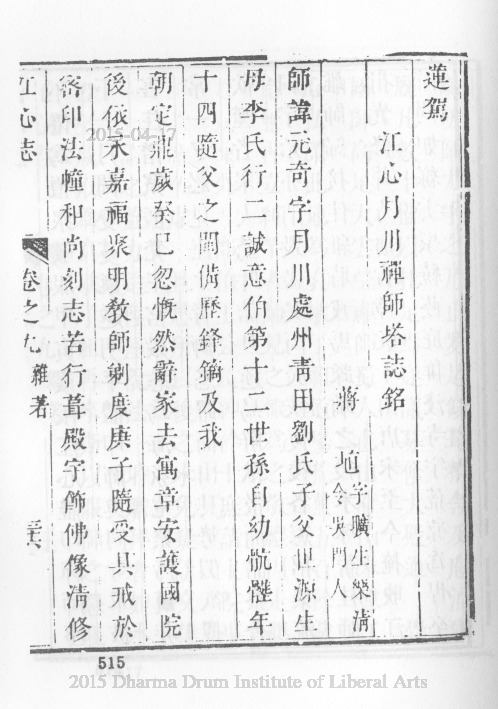 蓮駕
江心月川禪師塔誌銘
蔣
字職生樂清
令吳門人
師諱元奇字月川處州青田劉氏子父世源生
母李氏行二誠意伯第十二世孫自幼骯髒年
十四隨父之閩備歷鋒鏑及我
朝定鼎歲癸巳忽慨然辭家去寓章安護國院
後依永嘉福聚明教師剃度庚子隨受具戒於
密印法幢和尚刻志苦行葺殿宇飾佛像清修
江心志
卷之九
雜著
2015-04-17
515
2015 Dharma Drum Institute of Liberal Arts